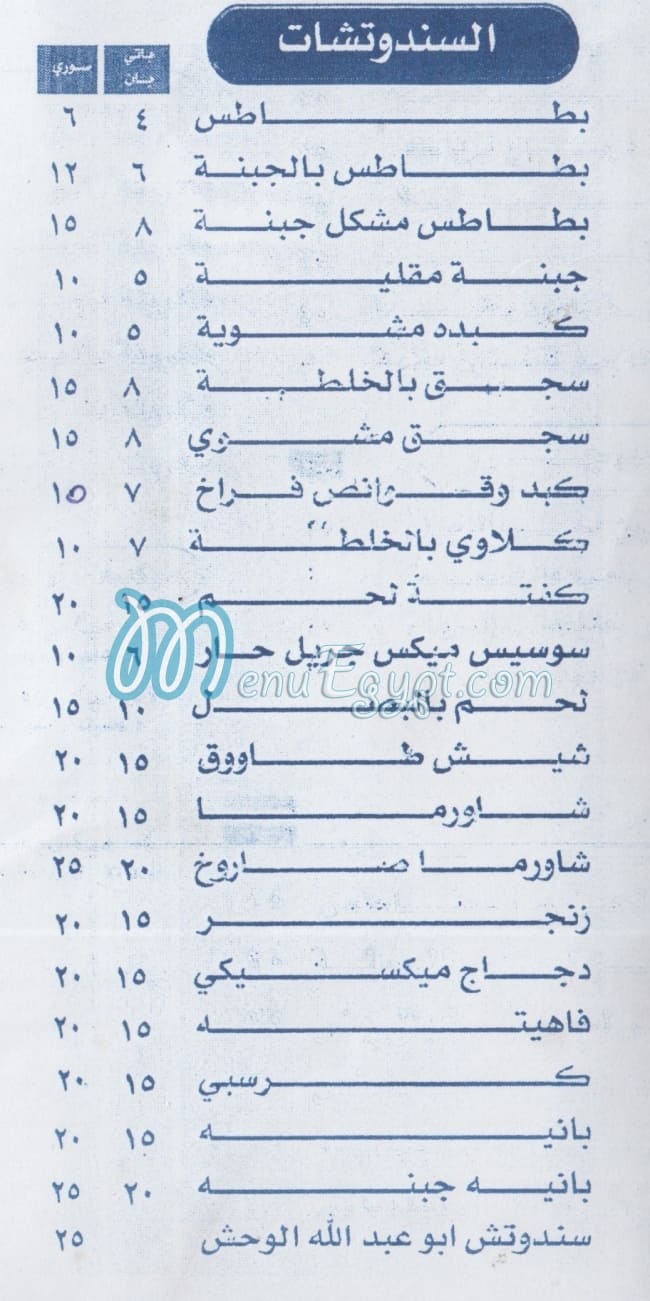 السندوتشات
هاتي بان سوري
بطاطس ٤ ٦
بطاطس بالجبنة ٦ ١٢
بطاطس مشكل جبنة ٨ ١٥
جبنة مقلية ٥ ١٠
كبدة مشوية ٥ ١٠
سجق بالخلطة ٨ ١٥
سجق مشوي ٨ ١٥
كبد وقوانص فراخ ٧ ١٥
كلاوي بالخلطة ٧ ١٠
كفتة لحم ١٥ ٢٠
سوسيس ميكس جريل حار ٦ ١٠
MenuEgypt.com
لحم بالبصل ١٠ ١٥
شيش طاووق ١٥ ٢٠
شاورما ١٥ ٢٠
شاورما صاروخ ٢٠ ٢٥
زنجر ١٥ ٢٠
دجاج ميكسيكي ١٥ ٢٠
فاهيته ١٥ ٢٠
كرسبي ١٥ ٢٠
بانيه ١٥ ٢٠
بانيه جبنه ٢٠ ٢٥
سندوتش ابو عبد الله الوحش ٢٥